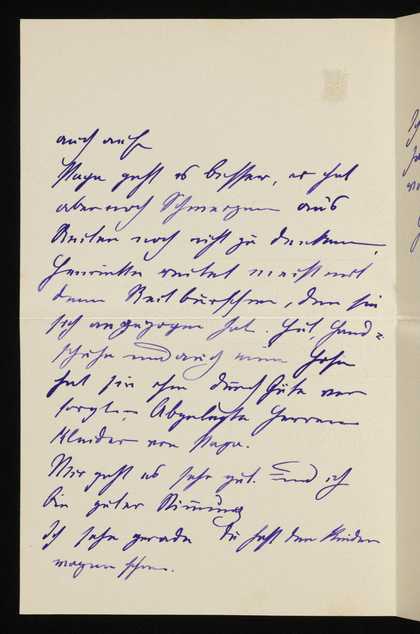 auch auf
Papa geht es besser, er hat
aber noch Schmerzen aus
Reiten noch nicht zu denken,
Henriette reitet meist mit
dem Reitburschen, den sie
sich angezogen hat. Hut, Hand-
schuhe und auch eine Hose
hat sie ihm durch Güte ver
sorgt. Abgelegte Herren
Kleider von Papa.
Mir geht es sehr gut. Und ich
bin guter Stimmung
Ich sehe gerade Du hast den Kinder
wagen schon.